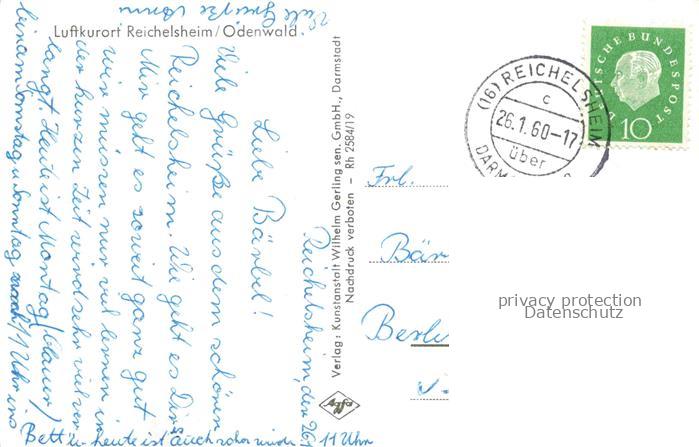 Luftkurort Reichelsheim/Odenwald
Viele Grüße
Reichelsheim, den 26.1
Liebe Bärbel!
Viele Grüße aus dem schönen
Reichelsheim. Wie geht es Dir?
Mir geht es soweit ganz gut
wir müssen nur viel lernen in
der kurzen Zeit wird sehr viel ver-
langt. Heute ist Montag (blauer)
Samstag u. Sonntag 11 Uhr ins
Bett u. heute ist auch schon wieder 11 Uhr
Verlag: Kunstanstalt Wilhelm Gerling sen. GmbH., Darmstadt
Nachdruck verboten – Rh 2584/19
Agfa
DEUTSCHE BUNDESPOST
10
(16) REICHELSHEIM
c
26.1.60-17
über
DARM
Frl.
Bär
Berli
privacy protection
Datenschutz